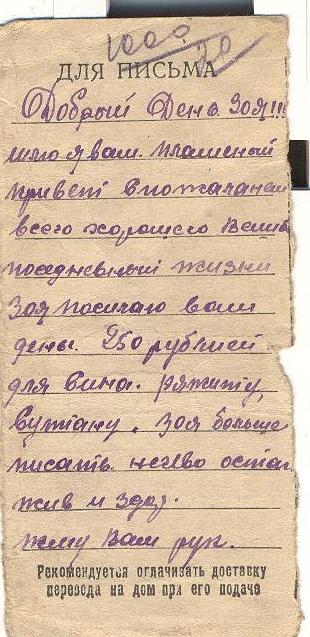 1000
20
ДЛЯ ПИСЬМА
Добрый День Зоя!!!
шлю я вам пламеный
привет в пожалании
всего хорошего Вашей
поседневный жизни
Зоя посилаю вам
дены. 250 рублией
для вина.
Зоя больше
писать нечево оста
жив и здор.
жму Вам рук.
Рекомендуется оплачивать доставку
перевода на дом при его подаче